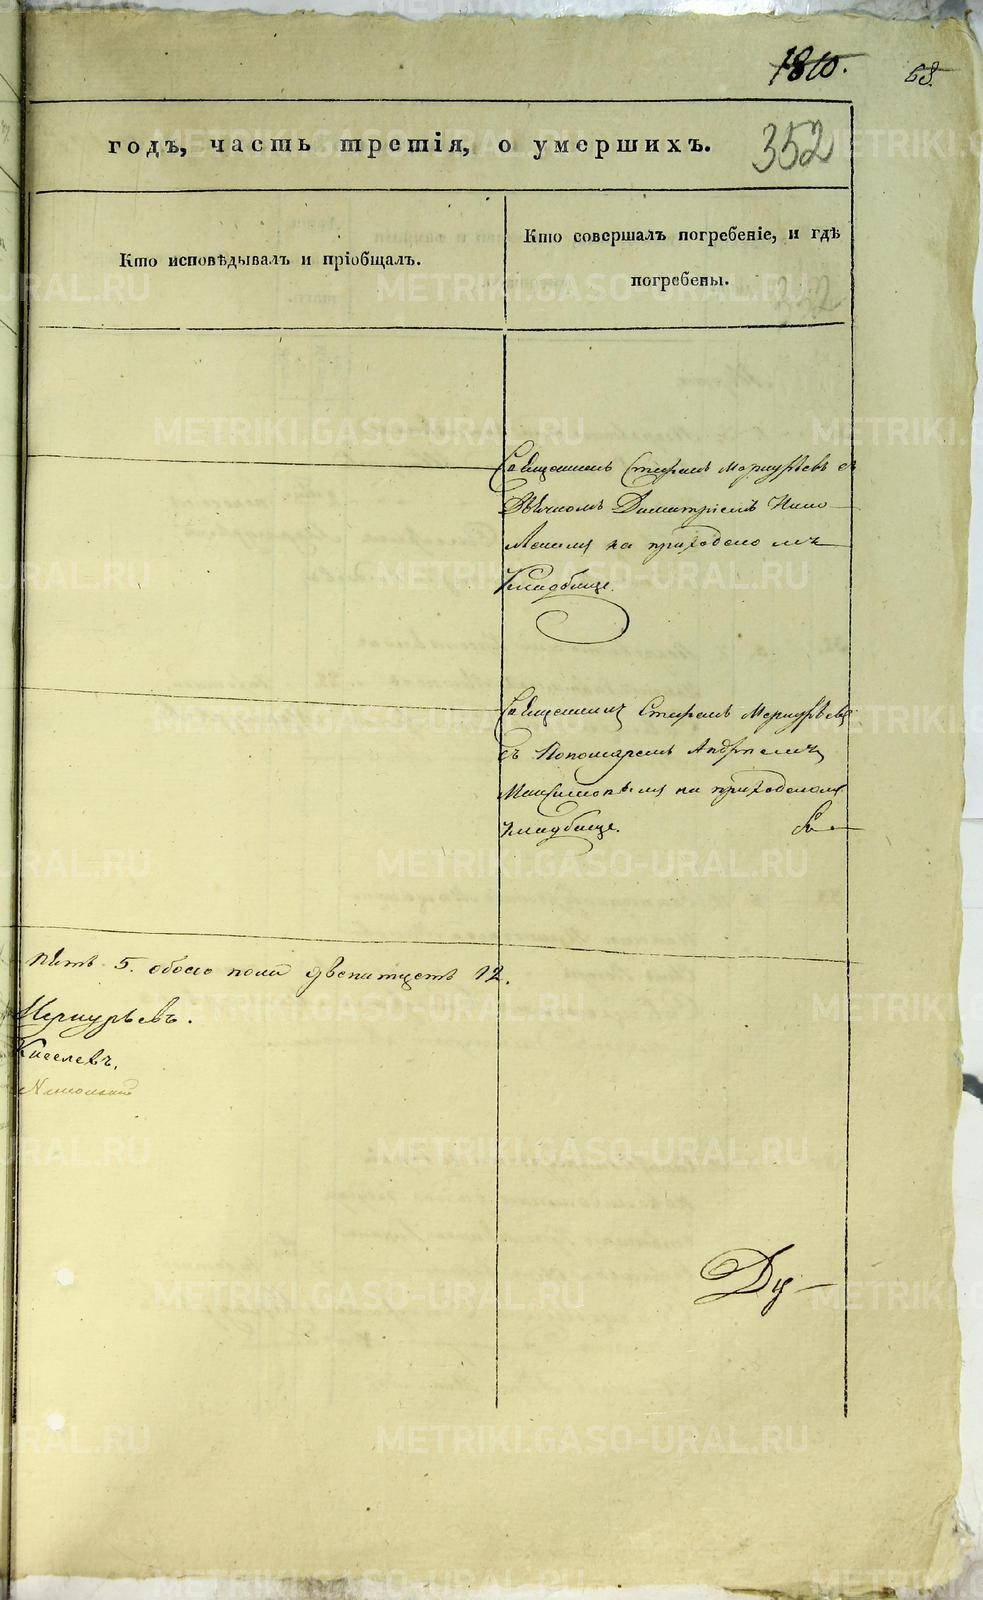 1810.
68.
годъ, часть третія, о умершихъ.
352
Кто исповѣдывалъ и пріобщалъ.
Кто совершалъ погребеніе, и гдѣ
погребены.
352
Священникъ Стефанъ Меркурьевъ съ
Дьячкомъ Димитріемъ Нико
на приходскомъ
кладбище.
Священникъ Стефанъ Меркурьевъ
съ Пономаремъ Андреемъ
Максимовымъ на приходскомъ
кладбище.
пять 5. обоего пола двенатцеть 12.
Меркурьевъ.
Киселевъ.
METRIKI.GASO-URAL.RU